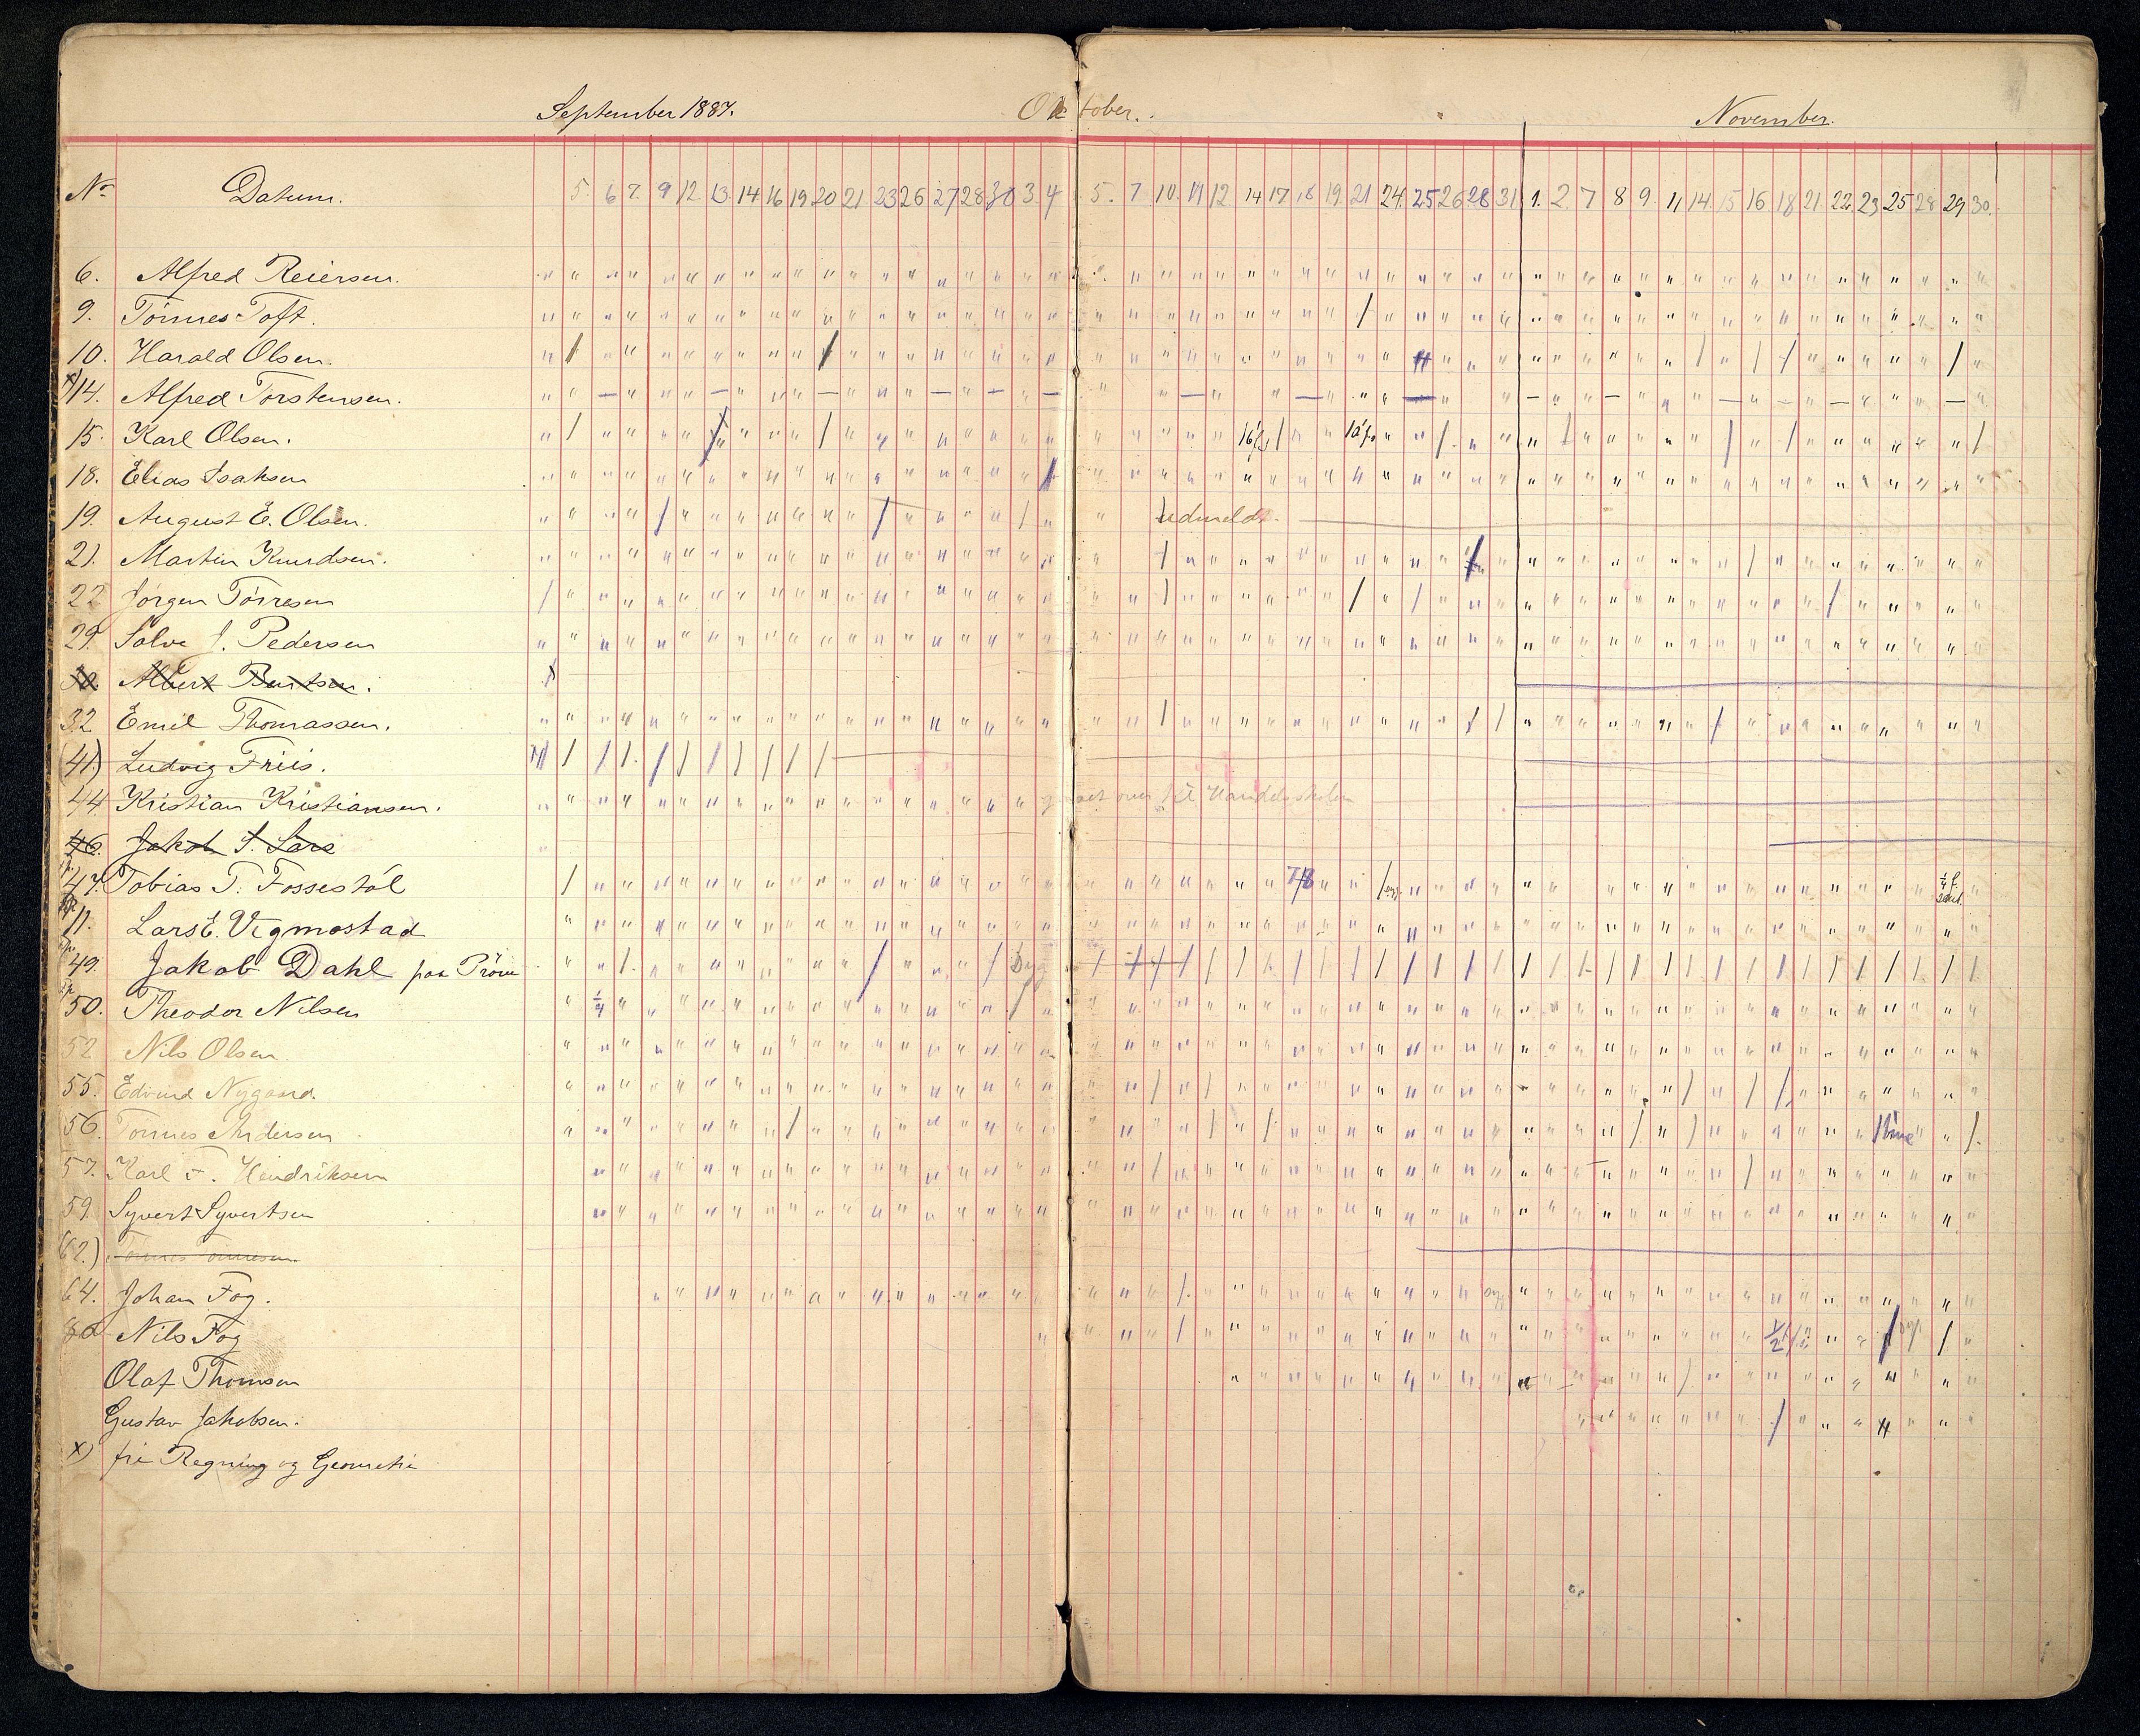 September 1887.
Oktober.
November.
No Datum. 5. 6 7. 9 12. 13. 14 16 19 20 21. 23 26 27 28 30 3. 4 5. 7 10. 11 12 14 17 18 19. 21 24. 25 26 28 31 1. 2. 7 8 9. 11 14. 15 16 18 21. 22. 23 25 28 29 30.
6. Alfred Reiersen.
9. Tönnes Toft.
10. Harald Olsen.
x) 14. Alfred Torstensen.
15. Karl Olsen.
18. Elias Isaksen
19. August E. Olsen. Udmeldt.
21. Martin Knudsen.
22 Jörgen Törresen
29. Salve J. Pedersen
30. Albert Berntsen.
32 Emil Thomassen.
(41) Ludvig Friis.
44 Kristian Kristiansen. gaaet over til Handelsskolen
46. Jakob S. Lars
47. Tobias T. Fossestöl 7/8
11. Lars E. Vigmostad
49. Jakob Dahl paa Pröve Syg
50. Theodor Nilsen 1/4
52 Nils Olsen
55. Edvind Nygaard.
56. Tönnes Andersen 1 time
57. Karl F. Hendriksen
59. Syvert Syvertsen
(62.)
64. Johan Fog. Syg
80 Nils Fog 1/2
Olaf Thomsen
Gustav Jakobsen.
x) fri Regning og Geometri